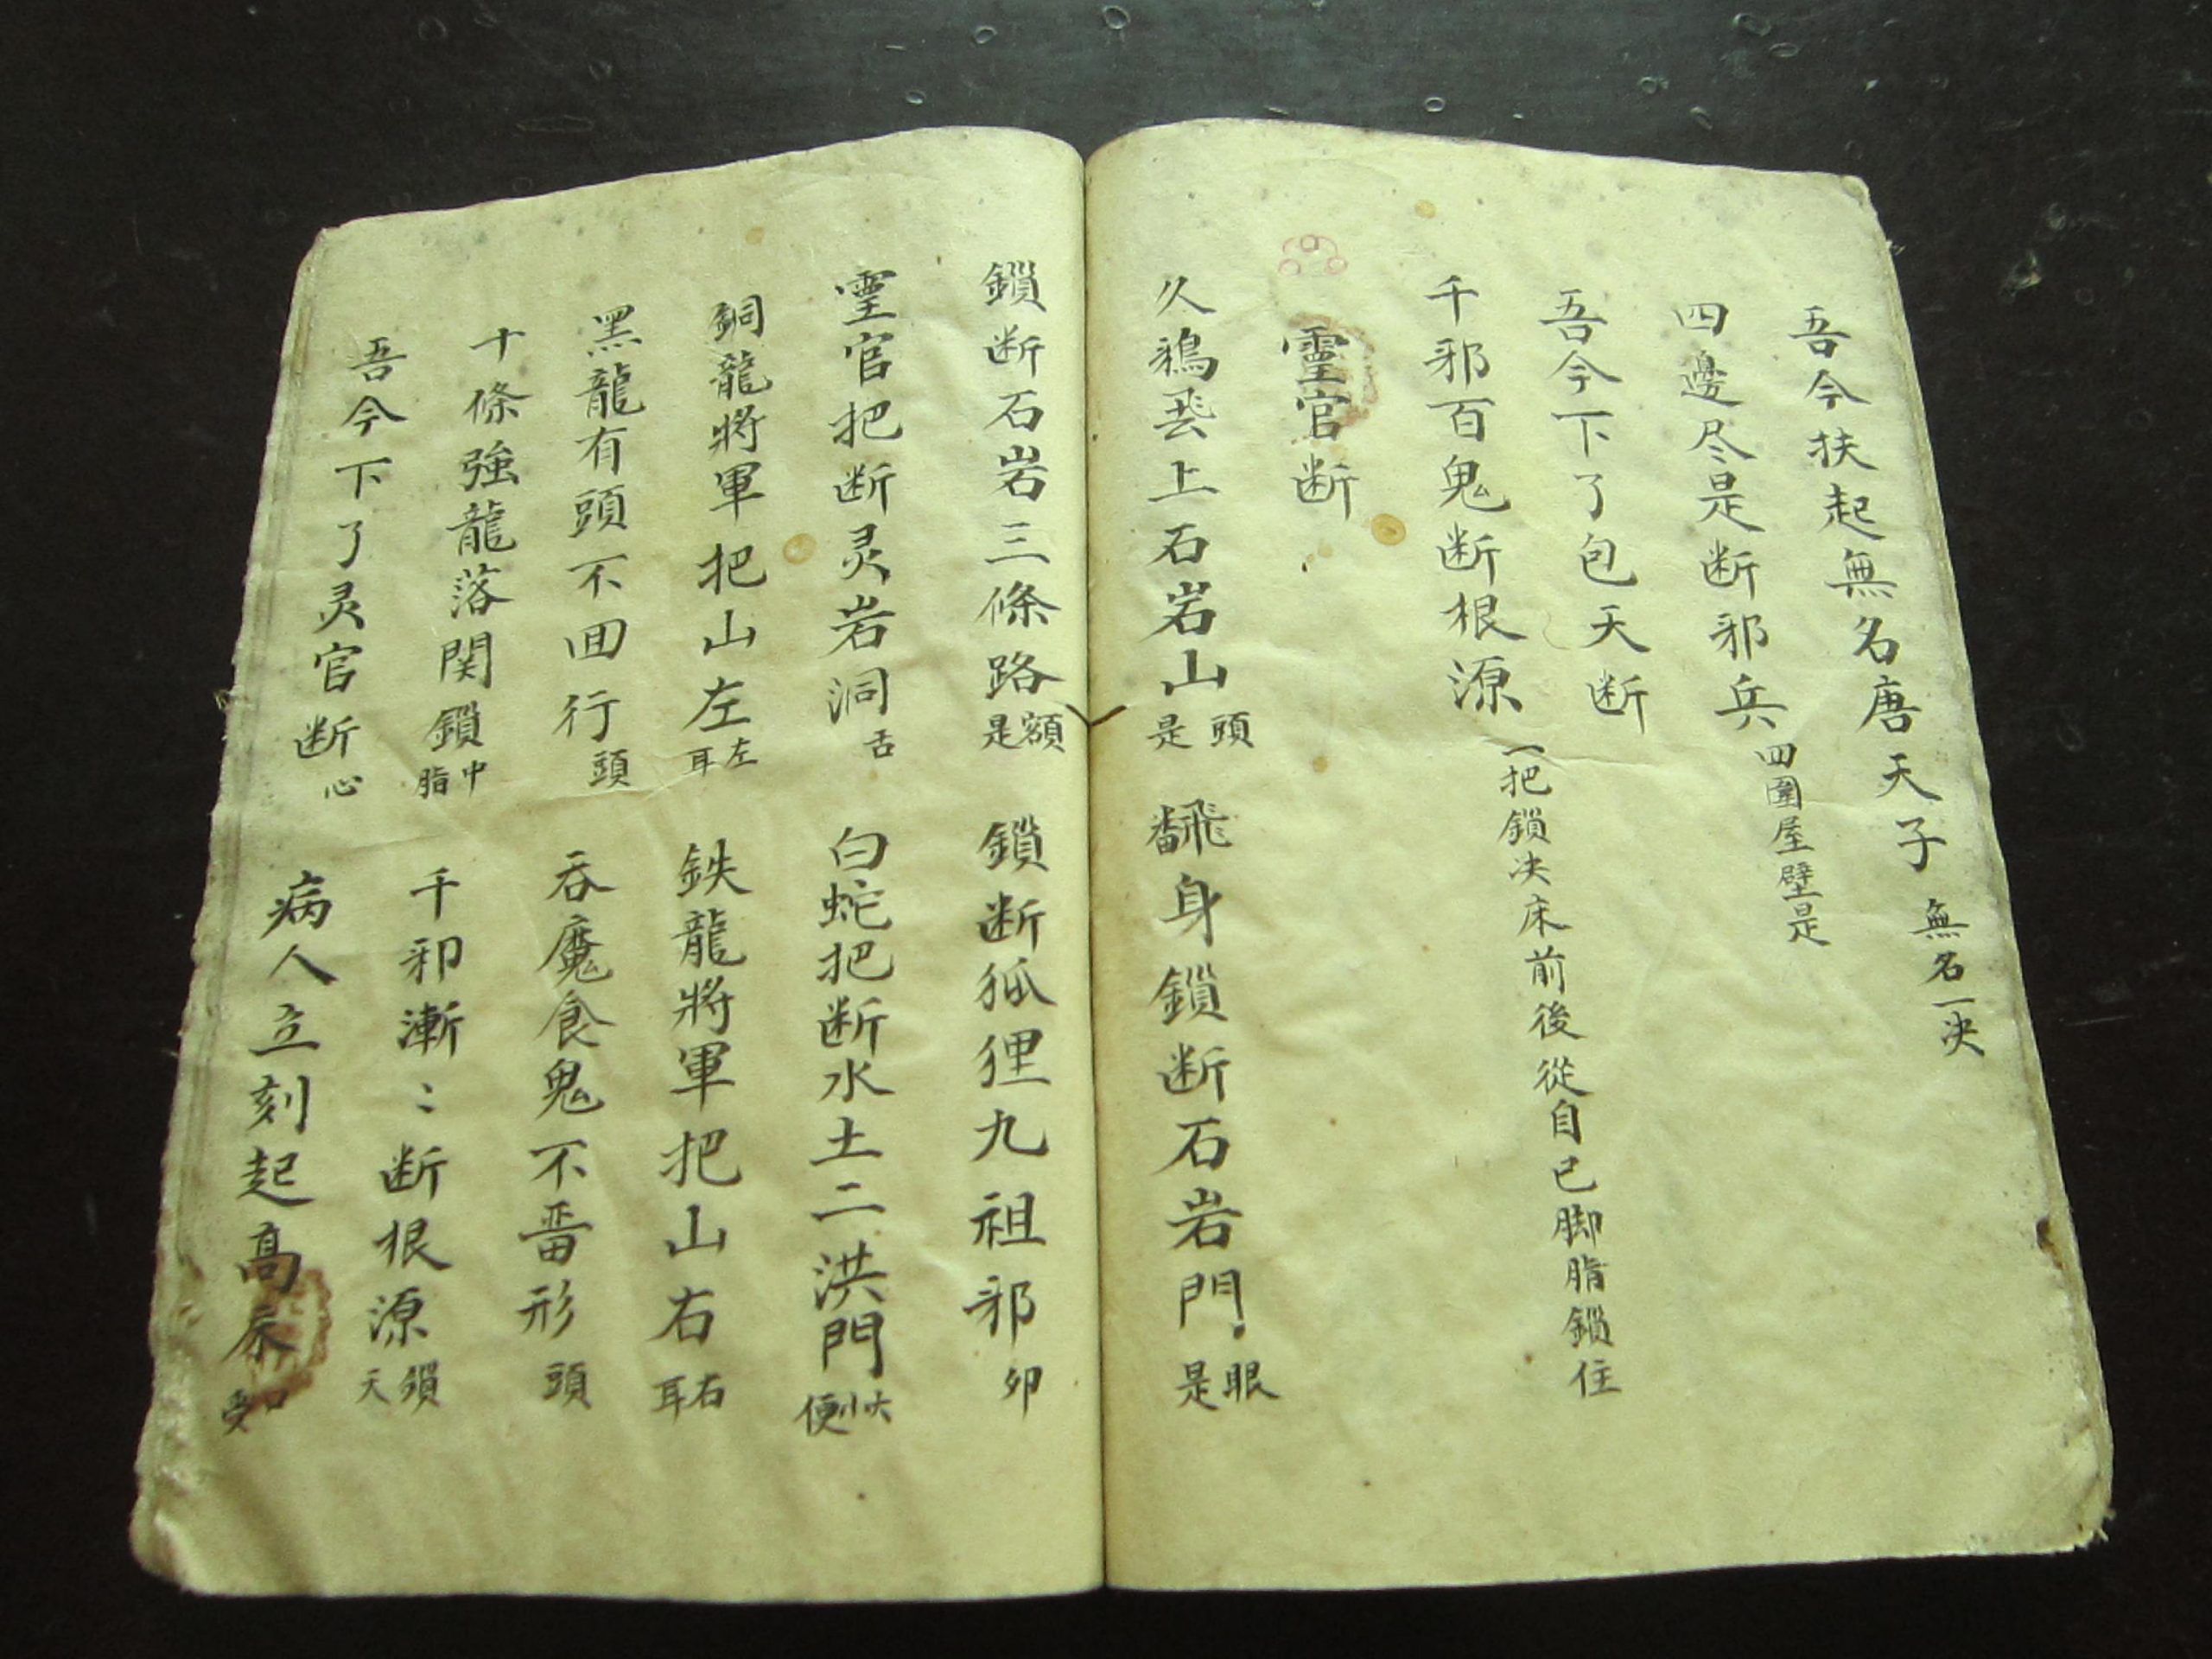 吾今扶起無名唐天子 無名一决
四邊尽是断邪兵 四圍屋壁是
吾今下了包天断
千邪百鬼断根源 一把鎖决床前後從自已脚脂鎖住
靈官断
久鴉飛上石岩山 頭是 翻身鎖断石岩門 眼是
鎖断石岩三條路 額是 鎖断狐狸九祖邪 卯
靈官把断灵岩洞 舌 白蛇把断水土二洪門 大小便
銅龍將軍把山左 左耳 鉄龍將軍把山右 右耳
黑龍有頭不回行 頭 吞魔食鬼不畱形 頭
十條強龍落関鎖 中脂 千邪漸〻断根源 鎖天
吾今下了灵官断 心 病人立刻起高床